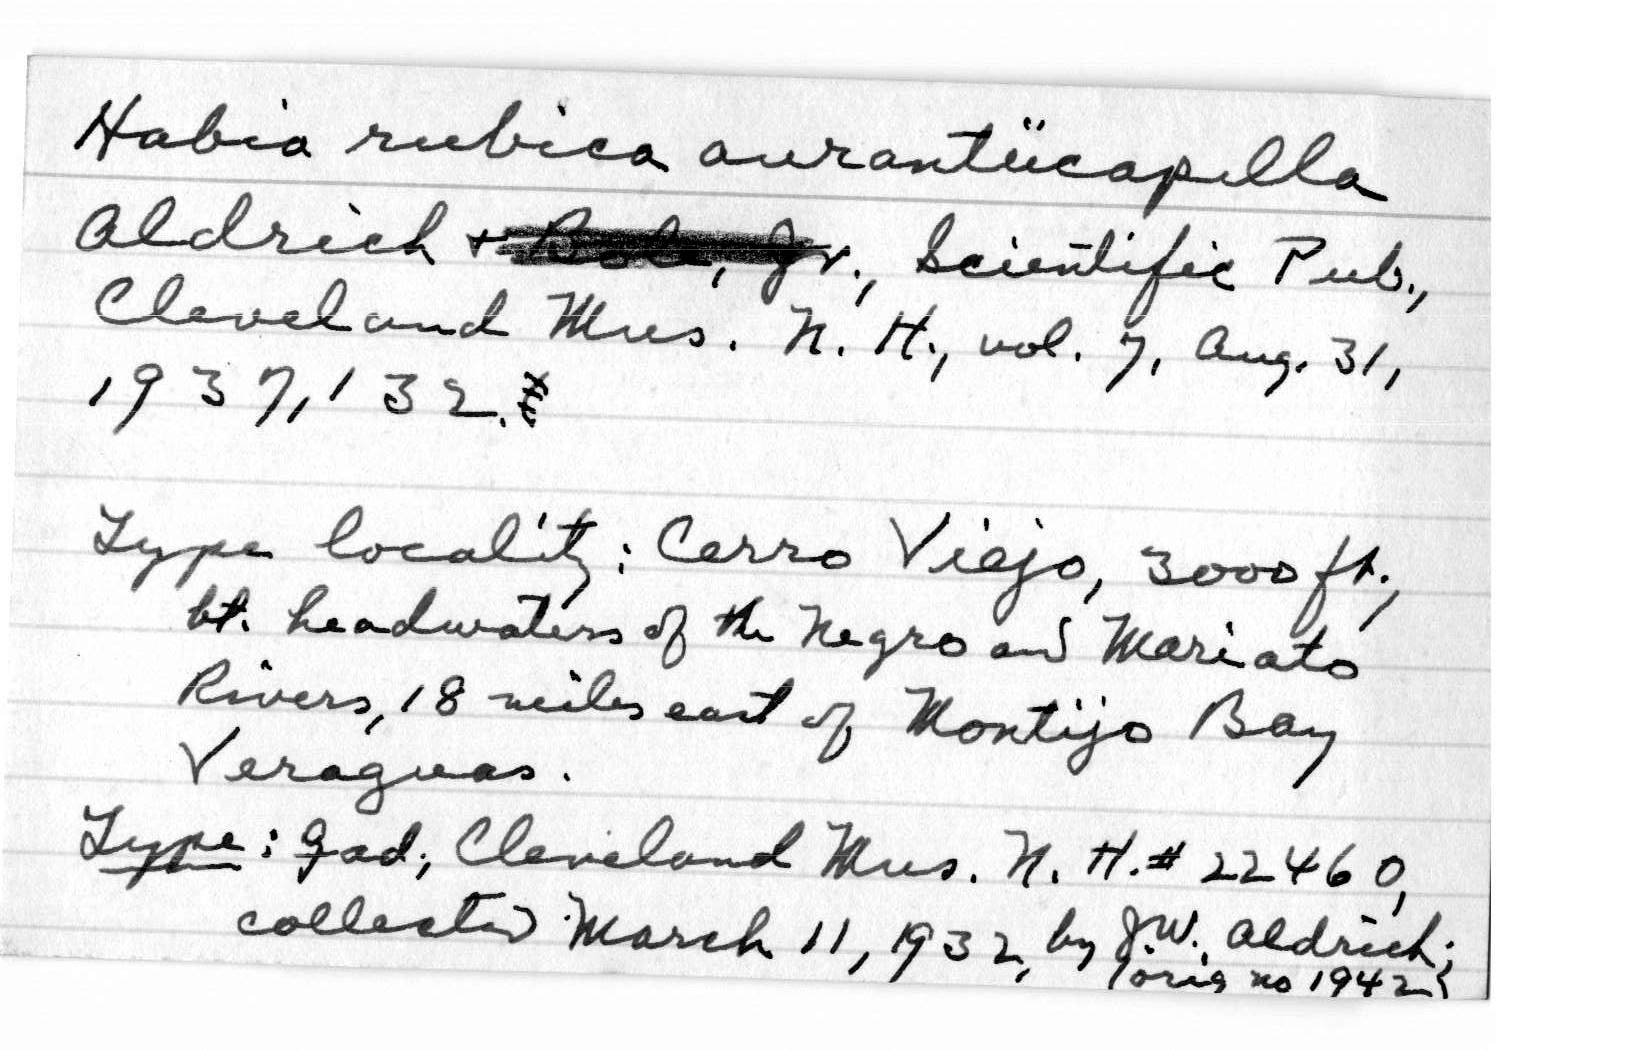 Habia rubica aurantiicapilla
Aldrich + Bole, Jr., Scientific Pub.,
Cleveland Mus. N. H., vol. 7, Aug. 31,
1937, 132.
Type locality: Cerro Viejo, 3000 ft.,
bt. headwaters of the Negro and Mariato
Rivers, 18 miles east of Montijo Bay
Veraguas.
Type: ♀ ad., Cleveland Mus. N. H. # 22460,
collected March 11, 1932, by J.W. Aldrich;
(orig no 1942)